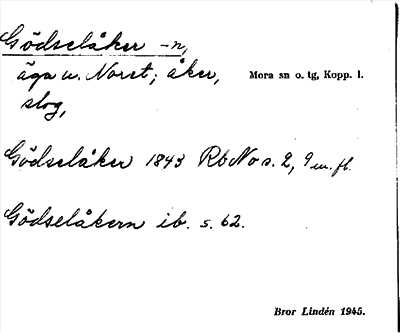 Gödselåker -n,
äga u. Noret; åker, Mora sn o. tg, Kopp. l.
slog,
Gödselåker 1843 RbNo s. 2, 9 m. fl.
Gödselåkern ib. s. 62.
Bror Lindén 1945.